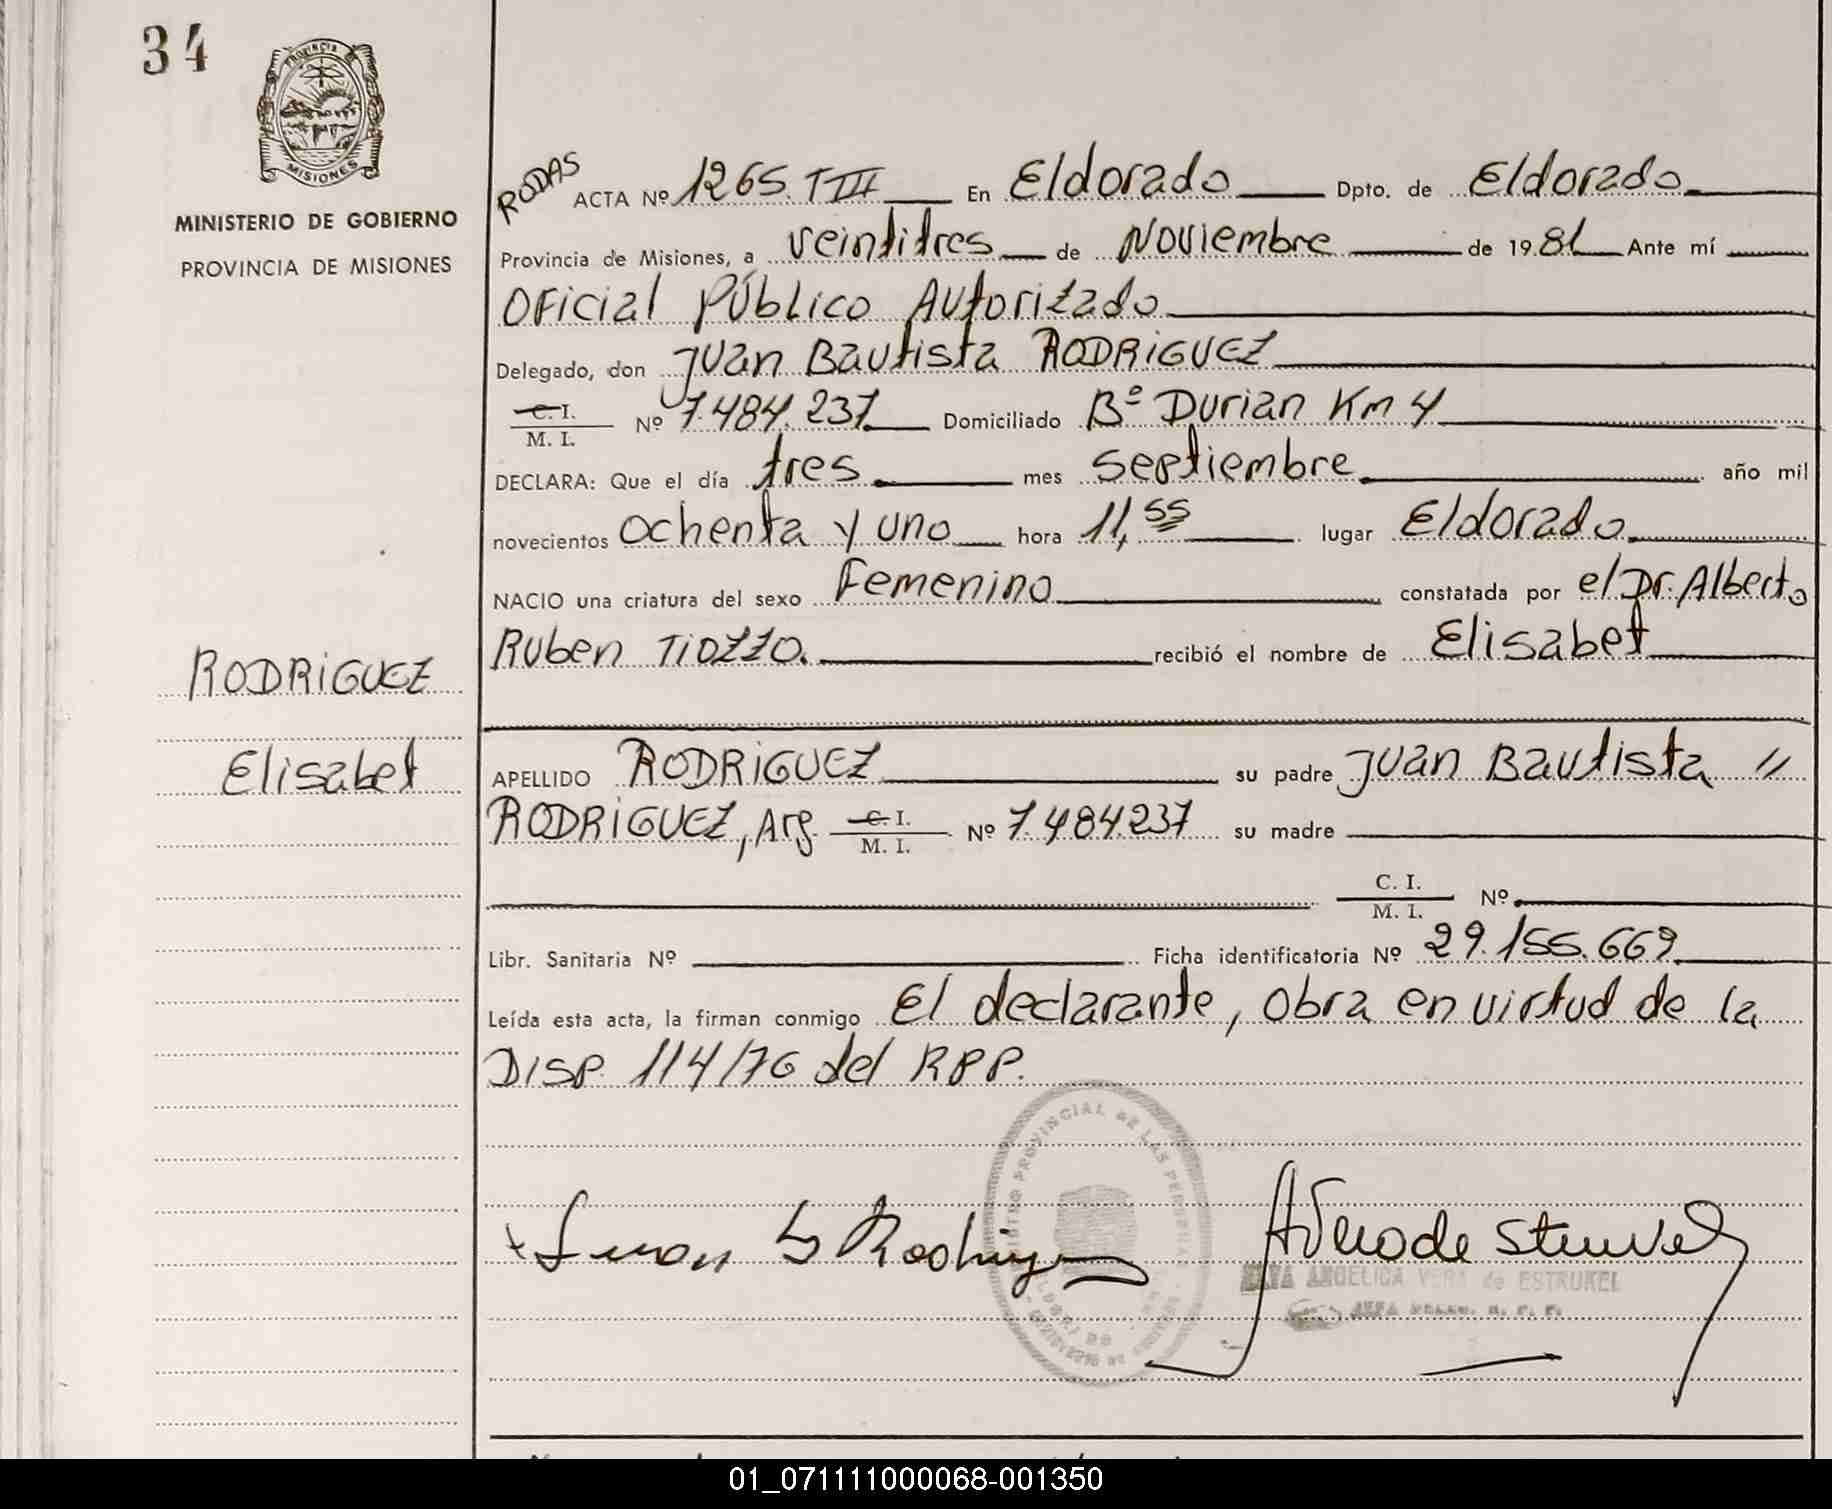 34
PROVINCIA DE
MISIONES
MINISTERIO DE GOBIERNO
PROVINCIA DE MISIONES
RODRIGUEZ
Elisabet
RODAS
ACTA Nº 1265. T III En Eldorado Dpto. de Eldorado
Provincia de Misiones, a veintitres de Noviembre de 1981 Ante mí
Oficial Público Autorizado
Delegado, don Juan Bautista RODRIGUEZ
C. I.
M. I. Nº 7.484.237 Domiciliado Bº Durian Km 4
DECLARA: Que el día tres mes septiembre año mil
novecientos ochenta y uno hora 11,55 lugar Eldorado
NACIO una criatura del sexo Femenino constatada por el Dr. Alberto
Ruben TIOZZO. recibió el nombre de Elisabet
APELLIDO RODRIGUEZ su padre Juan Bautista "
RODRIGUEZ, Arg. C. I.
M. I. Nº 7.484237 su madre
C. I.
M. I. Nº
Libr. Sanitaria Nº Ficha identificatoria Nº 29.155.669
Leída esta acta, la firman conmigo El declarante, obra en virtud de la
Disp. 114/76 del RPP.
PROVINCIAL DE LAS PERSONAS
Juan B Rodriguez
ANGELICA VERA de ESTRUKEL
01_071111000068-001350